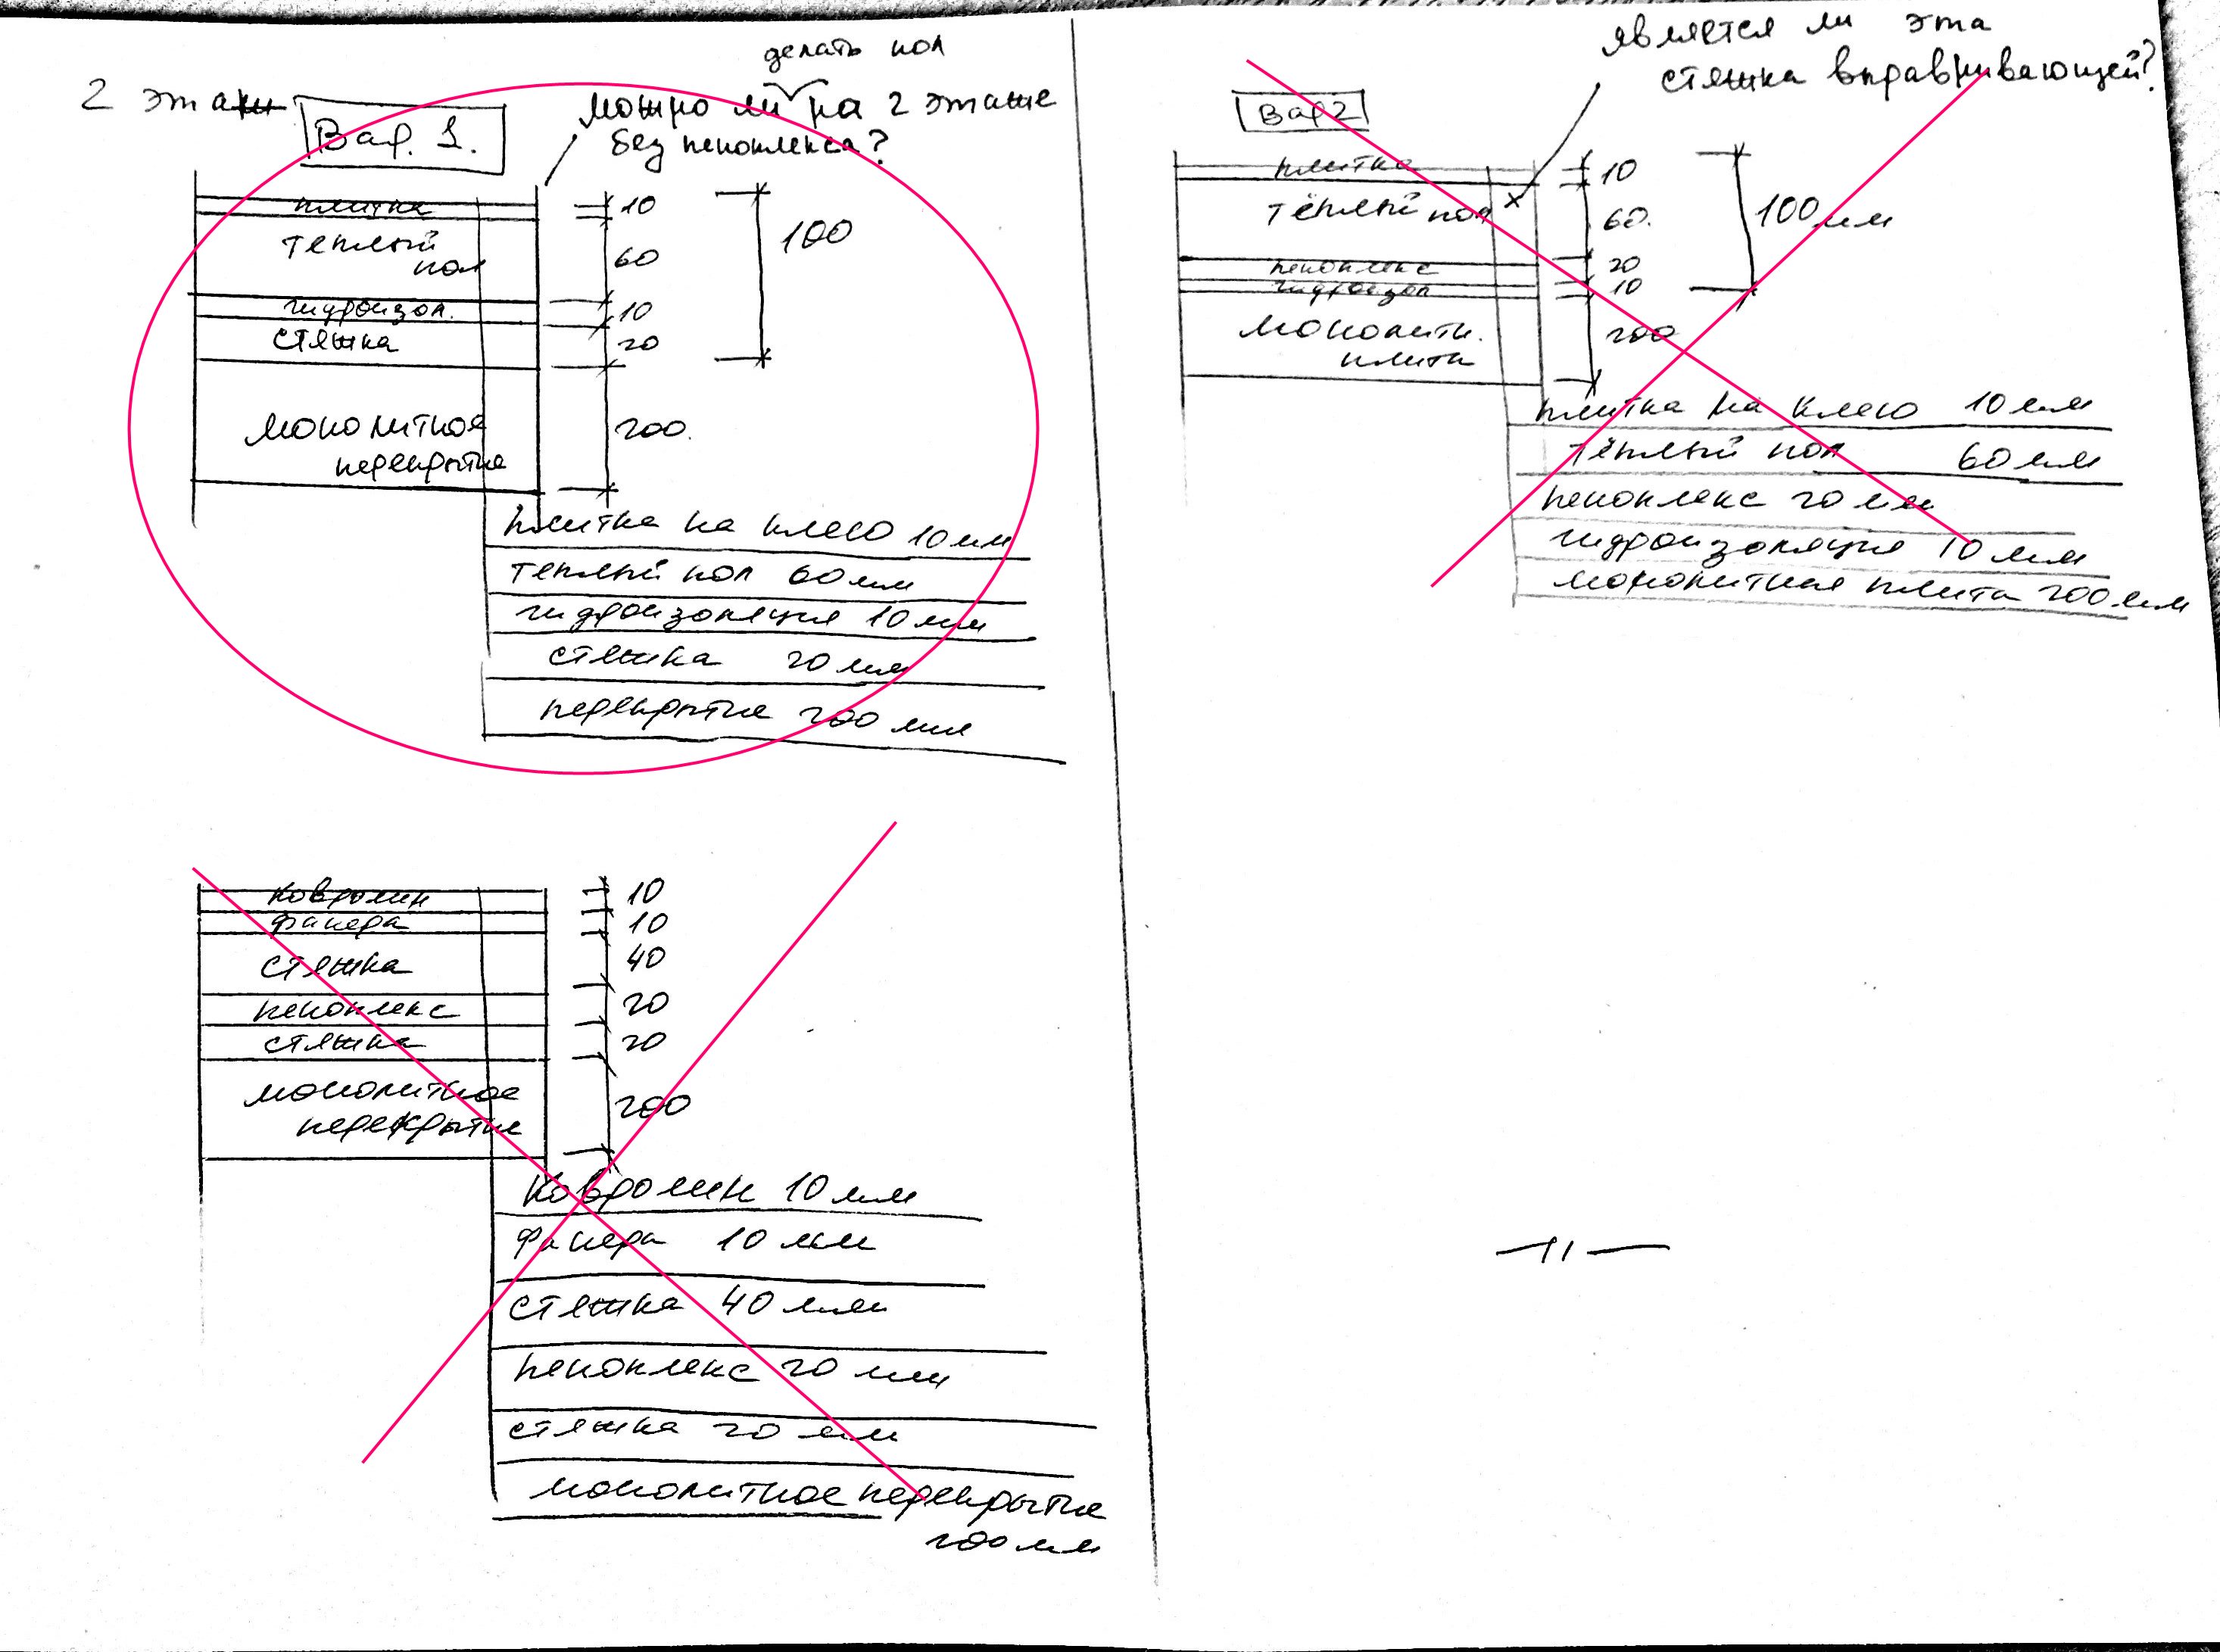 2 этаж
Вар. 1.
делать пол
можно ли на 2 этаже
без пеноплекса?
плитка
тёплый
пол
гидроизол.
стяжка
монолитное
перекрытие
10
60
10
20
200.
100
плитка на клею 10 мм
тёплый пол 60 мм
гидроизоляция 10 мм
стяжка 20 мм
перекрытие 200 мм
является ли эта
стяжка выравнивающей?
Вар 2
плитка
тёплый пол
пеноплекс
гидроизол
монолитн.
плита
10
60.
20
10
200
100 мм
плитка на клею 10 мм
тёплый пол 60 мм
пеноплекс 20 мм
гидроизоляция 10 мм
монолитная плита 200 мм
ковролин
фанера
стяжка
пеноплекс
стяжка
монолитное
перекрытие
10
10
40
20
20
200
ковролин 10 мм
фанера 10 мм
стяжка 40 мм
пеноплекс 20 мм
стяжка 20 мм
монолитное перекрытие
200 мм
—//—